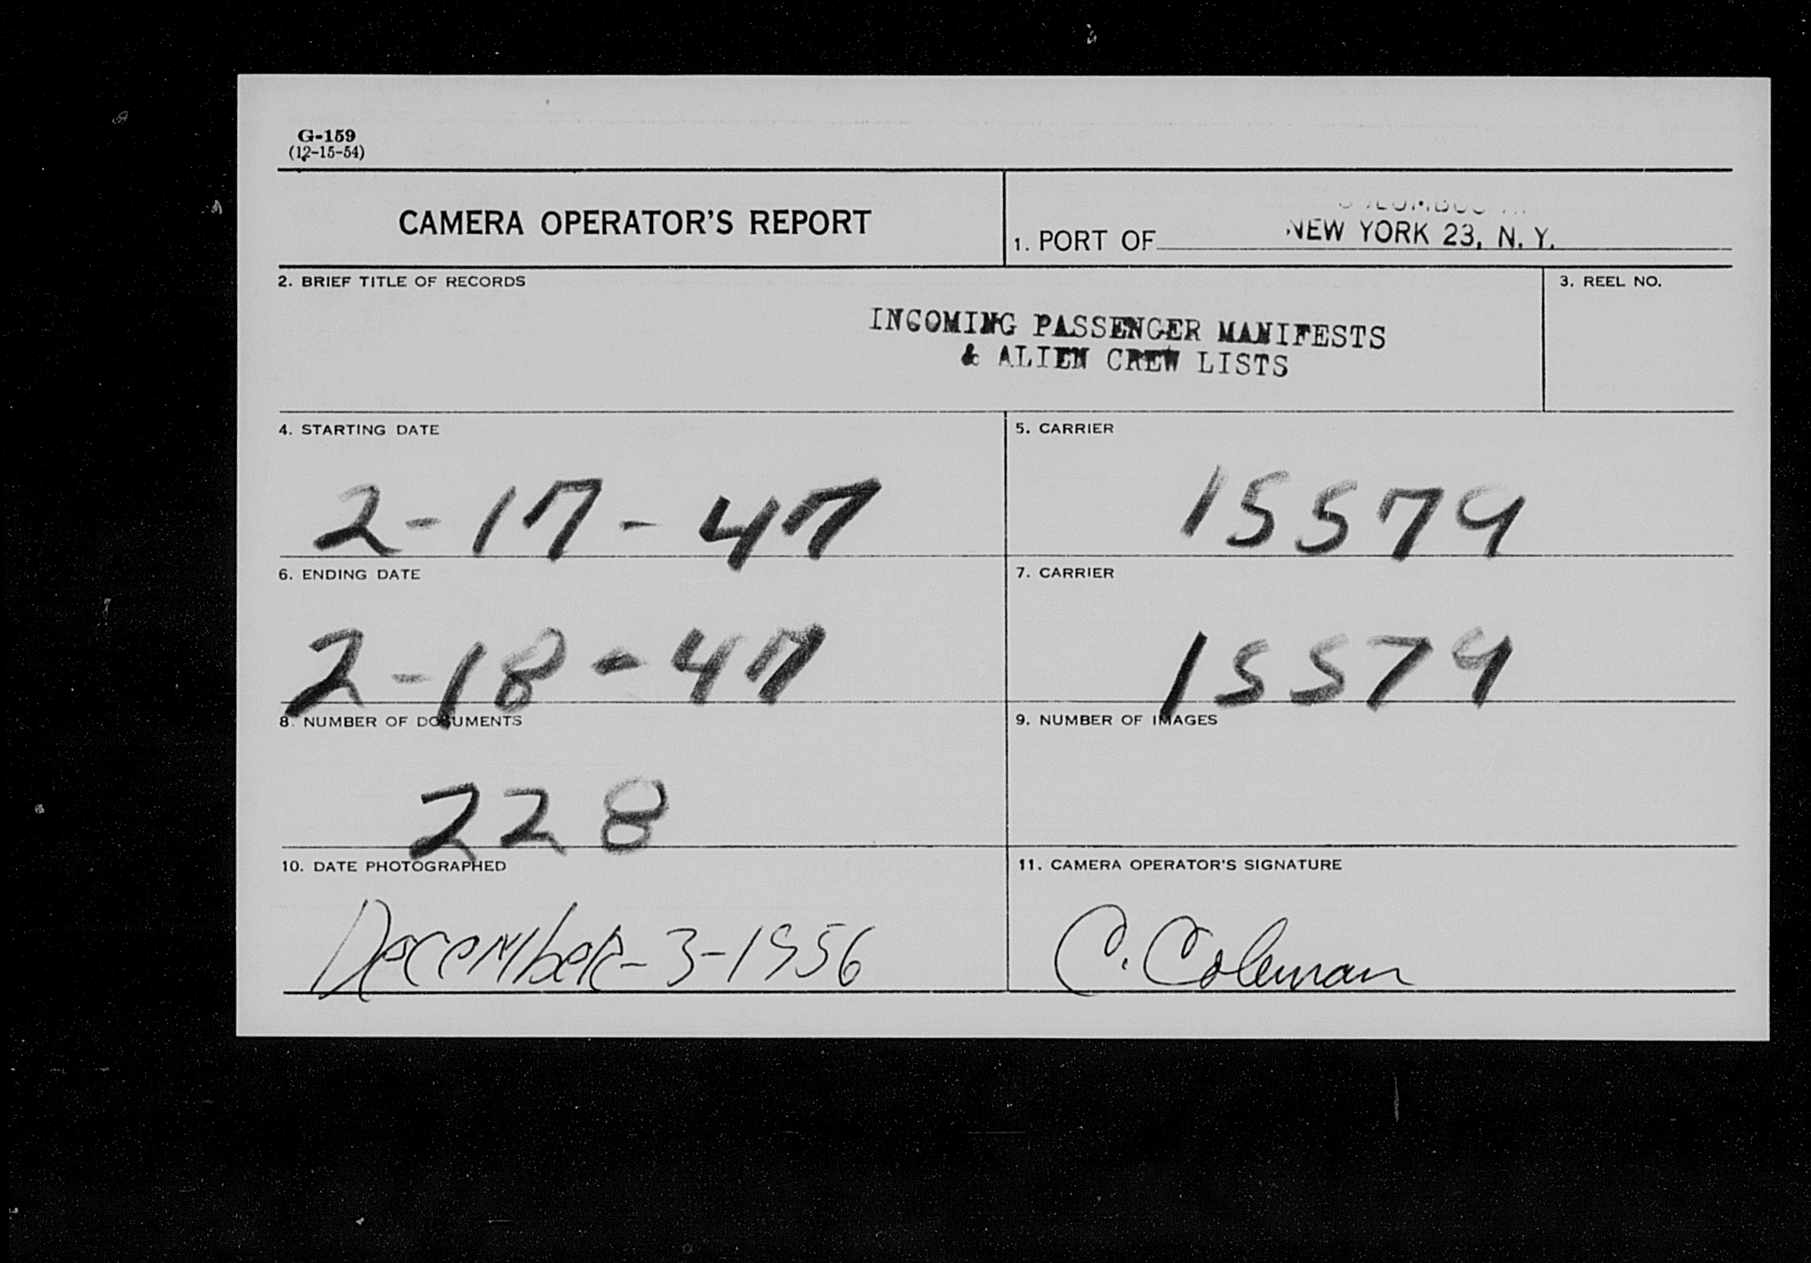 G-159
(12-15-54)
CAMERA OPERATOR'S REPORT
1. PORT OF NEW YORK 23, N. Y.
2. BRIEF TITLE OF RECORDS
3. REEL NO.
INCOMING PASSENGER MANIFESTS
& ALIEN CREW LISTS
4. STARTING DATE
5. CARRIER
2-17-47
15579
6. ENDING DATE
7. CARRIER
2-18-47
15579
8. NUMBER OF DOCUMENTS
9. NUMBER OF IMAGES
228
10. DATE PHOTOGRAPHED
11. CAMERA OPERATOR'S SIGNATURE
December-3-1956
C. Coleman